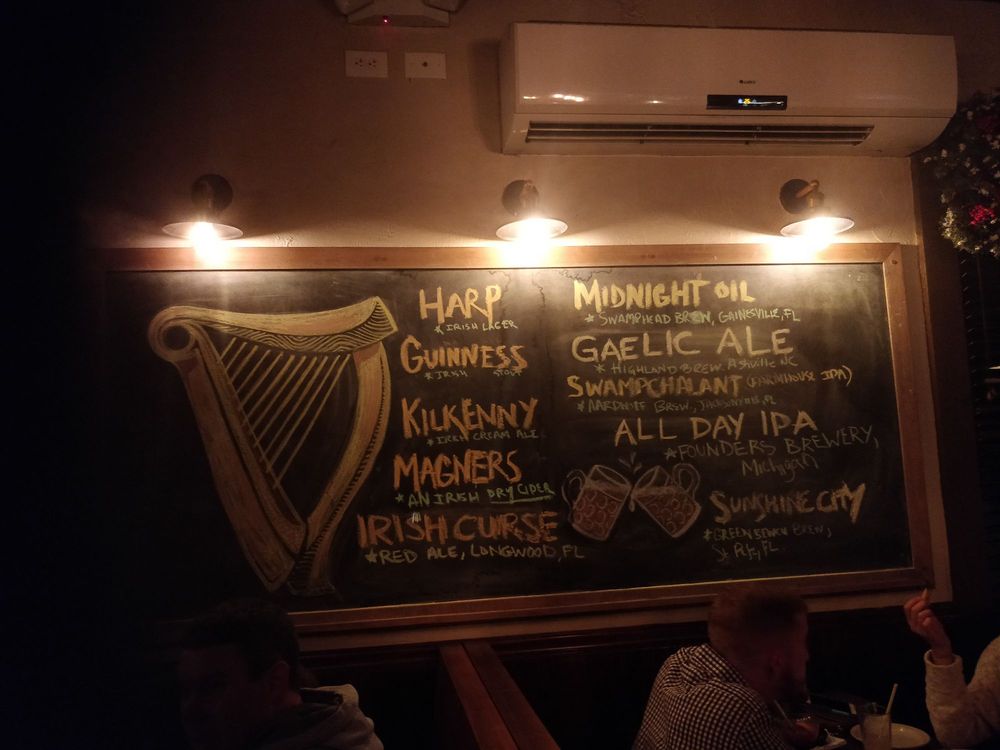 HARP
* IRISH LAGER
GUINNESS
* IRISH STOUT
KILKENNY
* IRISH CREAM ALE
MAGNERS
* AN IRISH DRY CIDER
IRISH CURSE
* RED ALE, LONGWOOD, FL
MIDNIGHT OIL
* SWAMPHEAD BREW, GAINESVILLE, FL
GAELIC ALE
* HIGHLAND BREW. Ashville NC
SWAMPCHALANT (FARMHOUSE IPA)
* AARDWOLF BREW., JACKSONVILLE, FL
ALL DAY IPA
* FOUNDERS BREWERY,
Michigan
SUNSHINE CITY
* GREEN BENCH BREW,
St. Pete, FL.